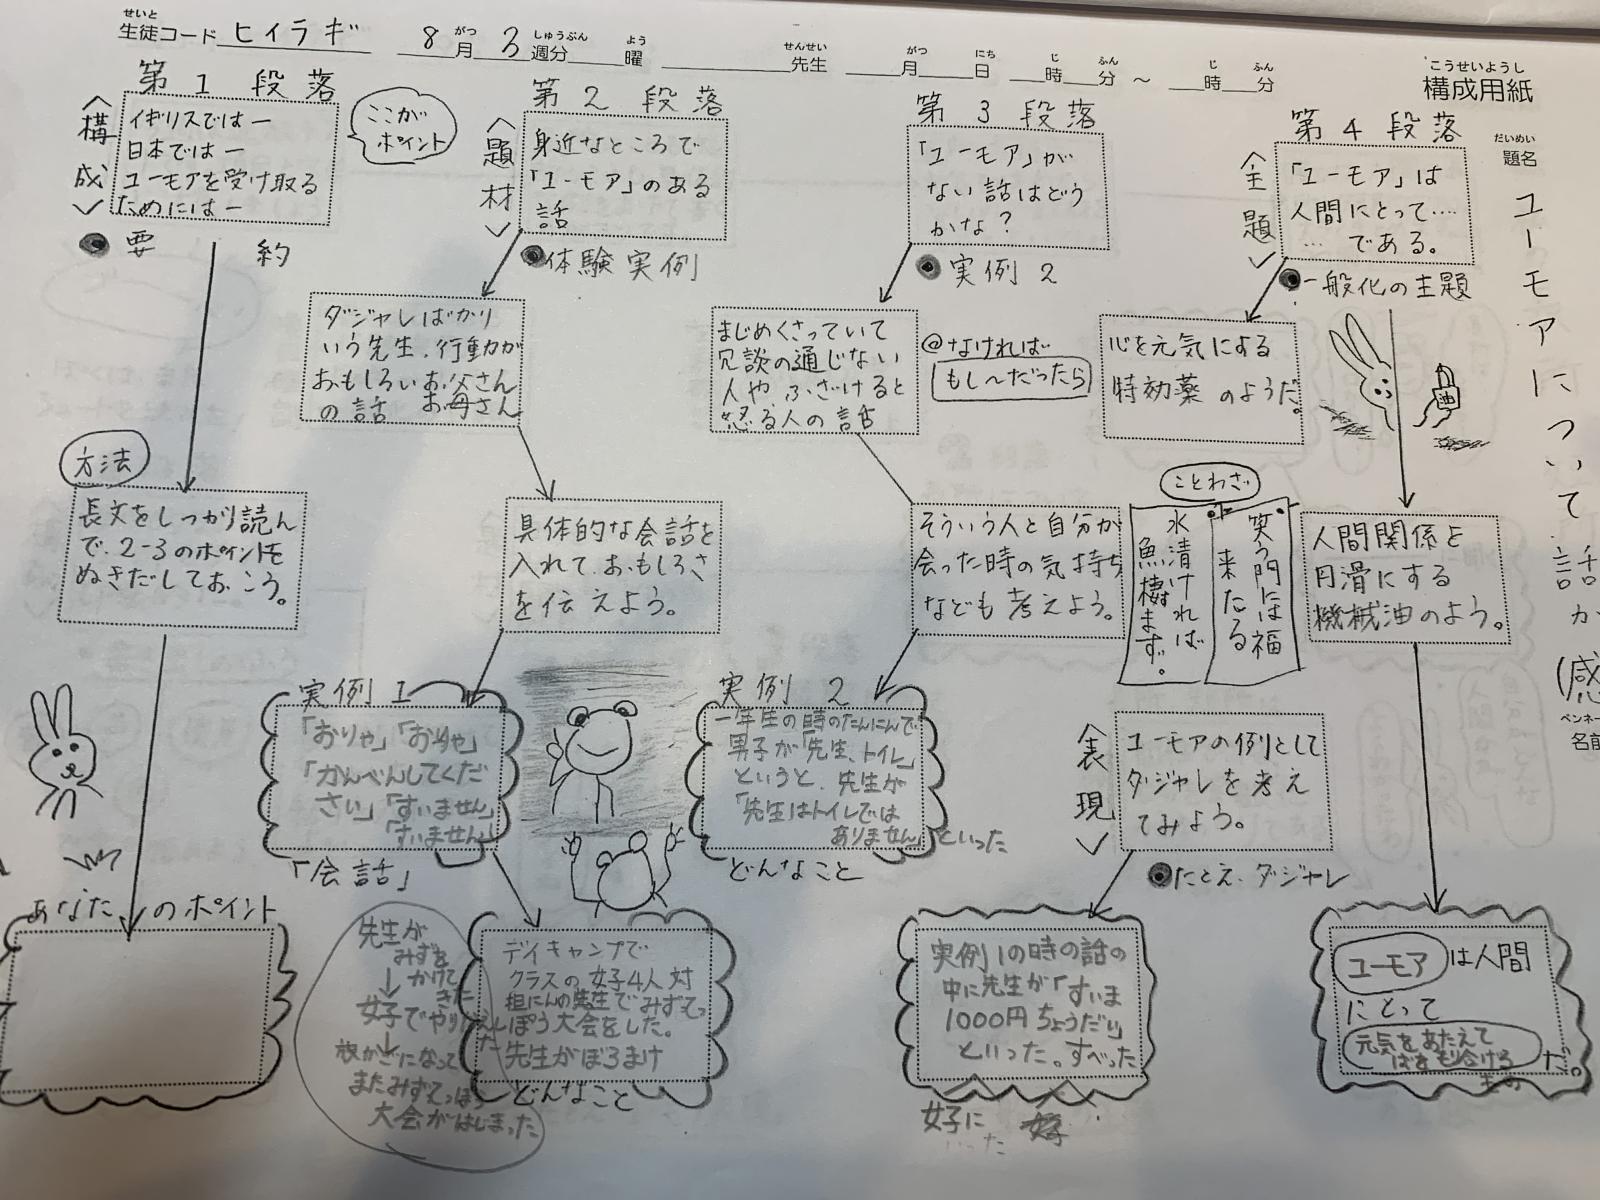 生徒コード ヒイラギ 8月3週分 曜 先生 月 日 時 分 ～ 時 分
せいと がつ しゅうぶん よう せんせい がつ にち じ ふん じ ふん
こうせいようし
構成用紙
だいめい
題名
ユーモアについて話か
(感
ペンネー
名前
第1段落
<構成>
イギリスではー
日本ではー
ユーモアを受け取る
ためにはー
ここが
ポイント
●要約
方法
長文をしっかり読ん
で、2-3のポイントを
ぬきだしておこう。
あなたのポイント
第2段落
<題材>
身近なところで
「ユーモア」のある
話
●体験実例
ダジャレばかり
いう先生、行動が
おもしろいお父さん
の話 お母さん
具体的な会話を
入れて、おもしろさ
を伝えよう。
実例1
「おりゃ」「おりゃ」
「かんべんしてくだ
さい」「すいません」
「すいません」
「会話」
デイキャンプで
クラスの女子4人対
担にんの先生でみずてっ
ぽう大会をした。
先生がぼろまけ
どんなこと
先生が
みずを
かけて
きた
↓
女子でやりかえした
↓
またみずてっぽう
大会がはじまった
第3段落
「ユーモア」が
ない話はどう
かな？
●実例2
まじめくさっていて
冗談の通じない
人や、ふざけると
怒る人の話
@なければ
もし～だったら
そういう人と自分が
会った時の気持ち
なども考えよう。
実例2
一年生の時のたんにんで
男子が「先生、トイレ」
というと、先生が
「先生はトイレでは
ありません」といった
どんなこと
第4段落
<主題>
「ユーモア」は
人間にとって‥‥
‥‥である。
●一般化の主題
心を元気にする
特効薬のようだ。
油
ことわざ
笑う門には福
来たる
水清ければ
魚棲まず。
人間関係を
円滑にする
機械油のよう。
<表現>
ユーモアの例として
ダジャレを考え
てみよう。
●たとえ、ダジャレ
実例1の時の話の
中に先生が「すいま
1000円ちょうだい」
といった。すべった
女子に
いった
ユーモアは人間
にとって
元気をあたえて
もの
だ。